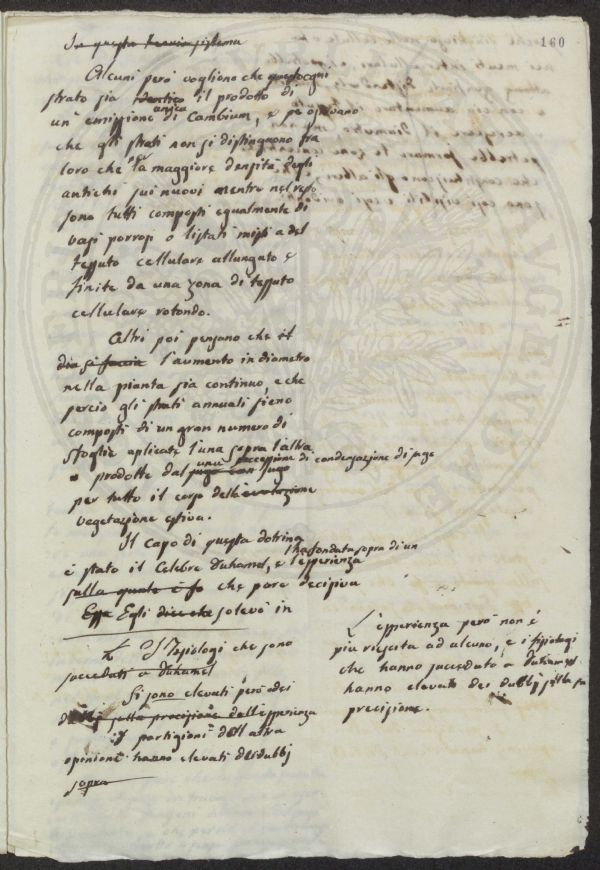 160
In questo sistema
Alcuni però vogliono che ogni
strato sia identico il prodotto di
un' unica emissione di Cambium, e pe osservano
che gli strati non si distinguono fra
loro che la maggiore densità degli
antichi sui nuovi mentre nel resto
sono tutti composti egualmente di
vasi porrosi o listati misti a del
tessuto cellulare allungato e
finite da una zona di tessuto
cellulare rotondo.
Altri poi pensano che il
si faccia l'aumento in diametro
nella pianta sia continuo, e che
perciò gli strati annuali sieno
composti di un gran numero di
sfoglie aplicate l'una sopra l'altra
e prodotte dal una successione di condensazione di sugo
per tutto il corso della
vegetazione estiva.
Il capo di questa dotrina
è stato il Celebre Duhamel, e l'ha fondata sopra di un esperienza
sulla quale che pare decisiva
Essa Egli dice che soleva in
I Fisiologi che sono
succeduti a Duhamel
Si sono elevati però dei
dubbj sulla precisione dell'esperienza
i partigiani dell'altra
opinione hanno elevati dei dubbj
sopra
L'esperienza però non è
più riescita ad alcuno, e i fisiologi
che hanno succeduto a Duhamel
hanno elevato dei dubbj sulla sua
precisione.